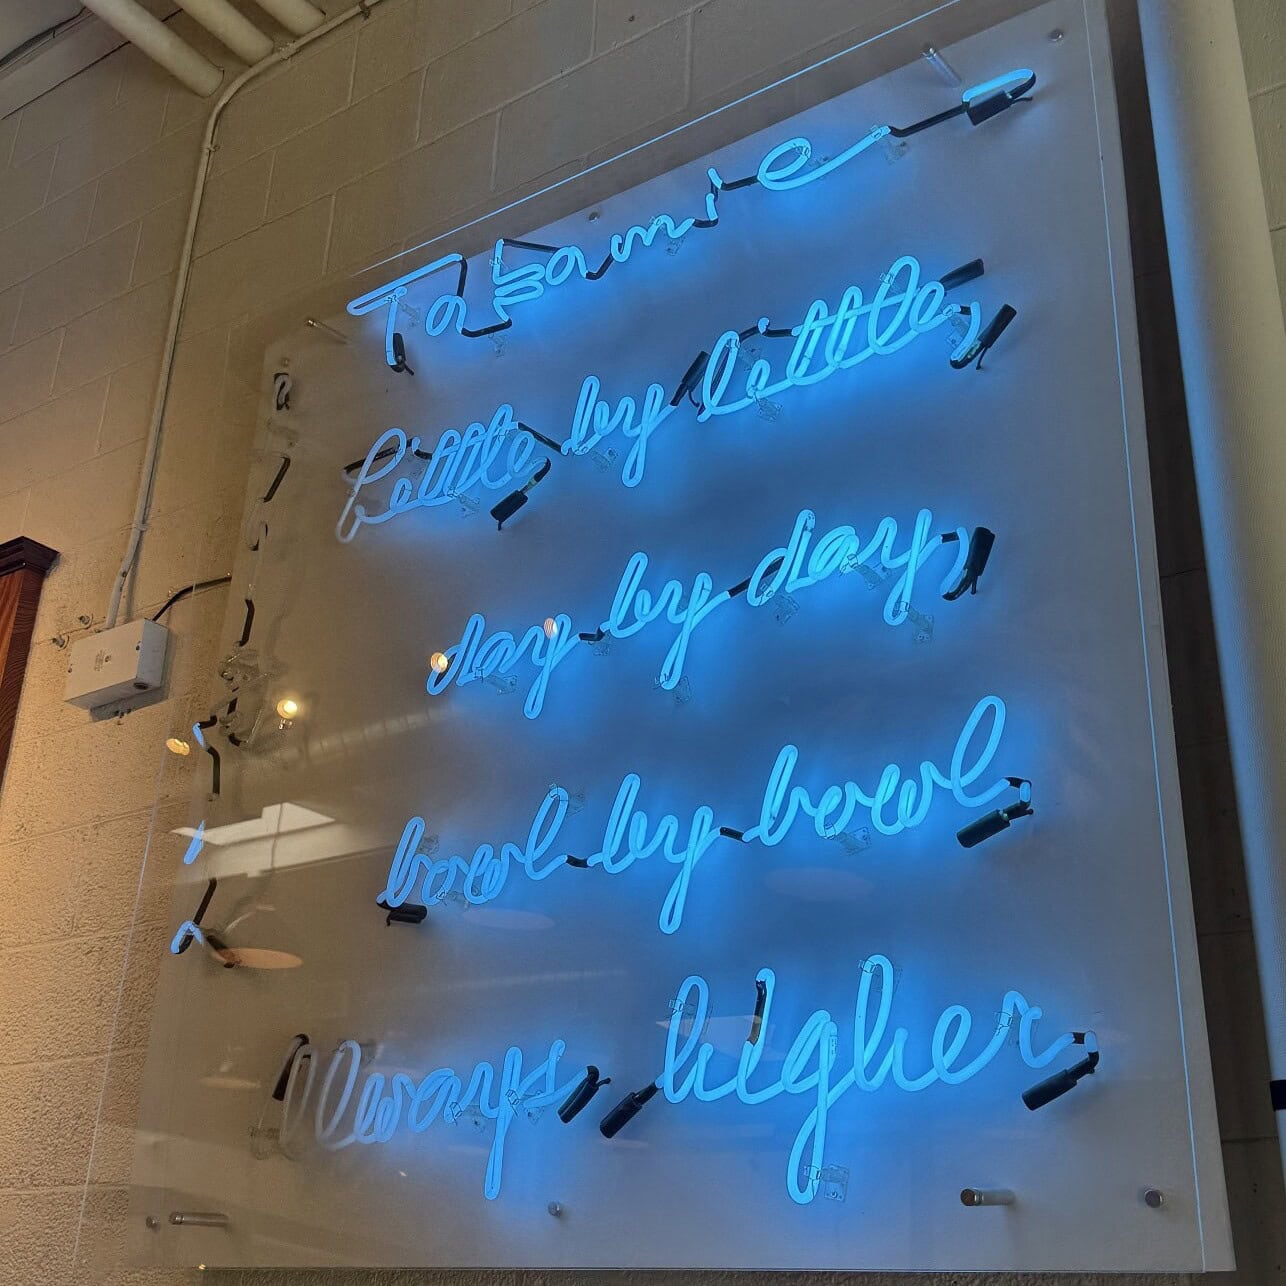 Takamie
Little by little,
day by day,
bowl by bowl
Always higher